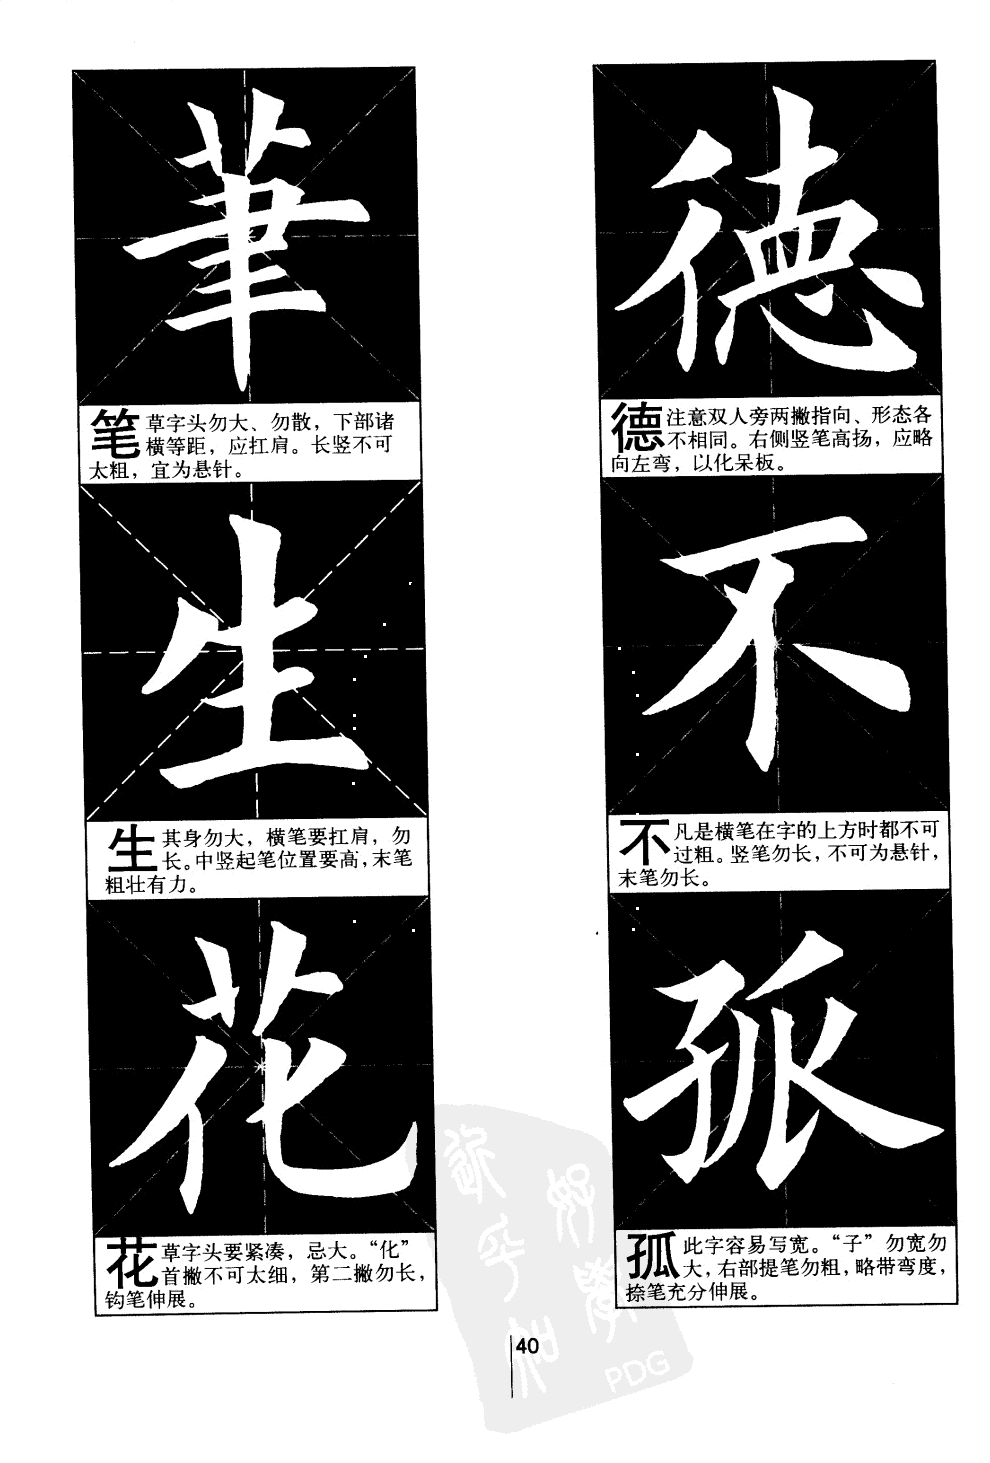 筆
笔 草字头勿大、勿散，下部诸
横等距，应扛肩。长竖不可
太粗，宜为悬针。
生
生 其身勿大，横笔要扛肩，勿
长。中竖起笔位置要高，末笔
粗壮有力。
花
花 草字头要紧凑，忌大。“化”
首撇不可太细，第二撇勿长，
钩笔伸展。
德
德 注意双人旁两撇指向、形态各
不相同。右侧竖笔高扬，应略
向左弯，以化呆板。
不
不 凡是横笔在字的上方时都不可
过粗。竖笔勿长，不可为悬针，
末笔勿长。
孤
孤 此字容易写宽。“子”勿宽勿
大，右部提笔勿粗，略带弯度，
捺笔充分伸展。
40
PDG